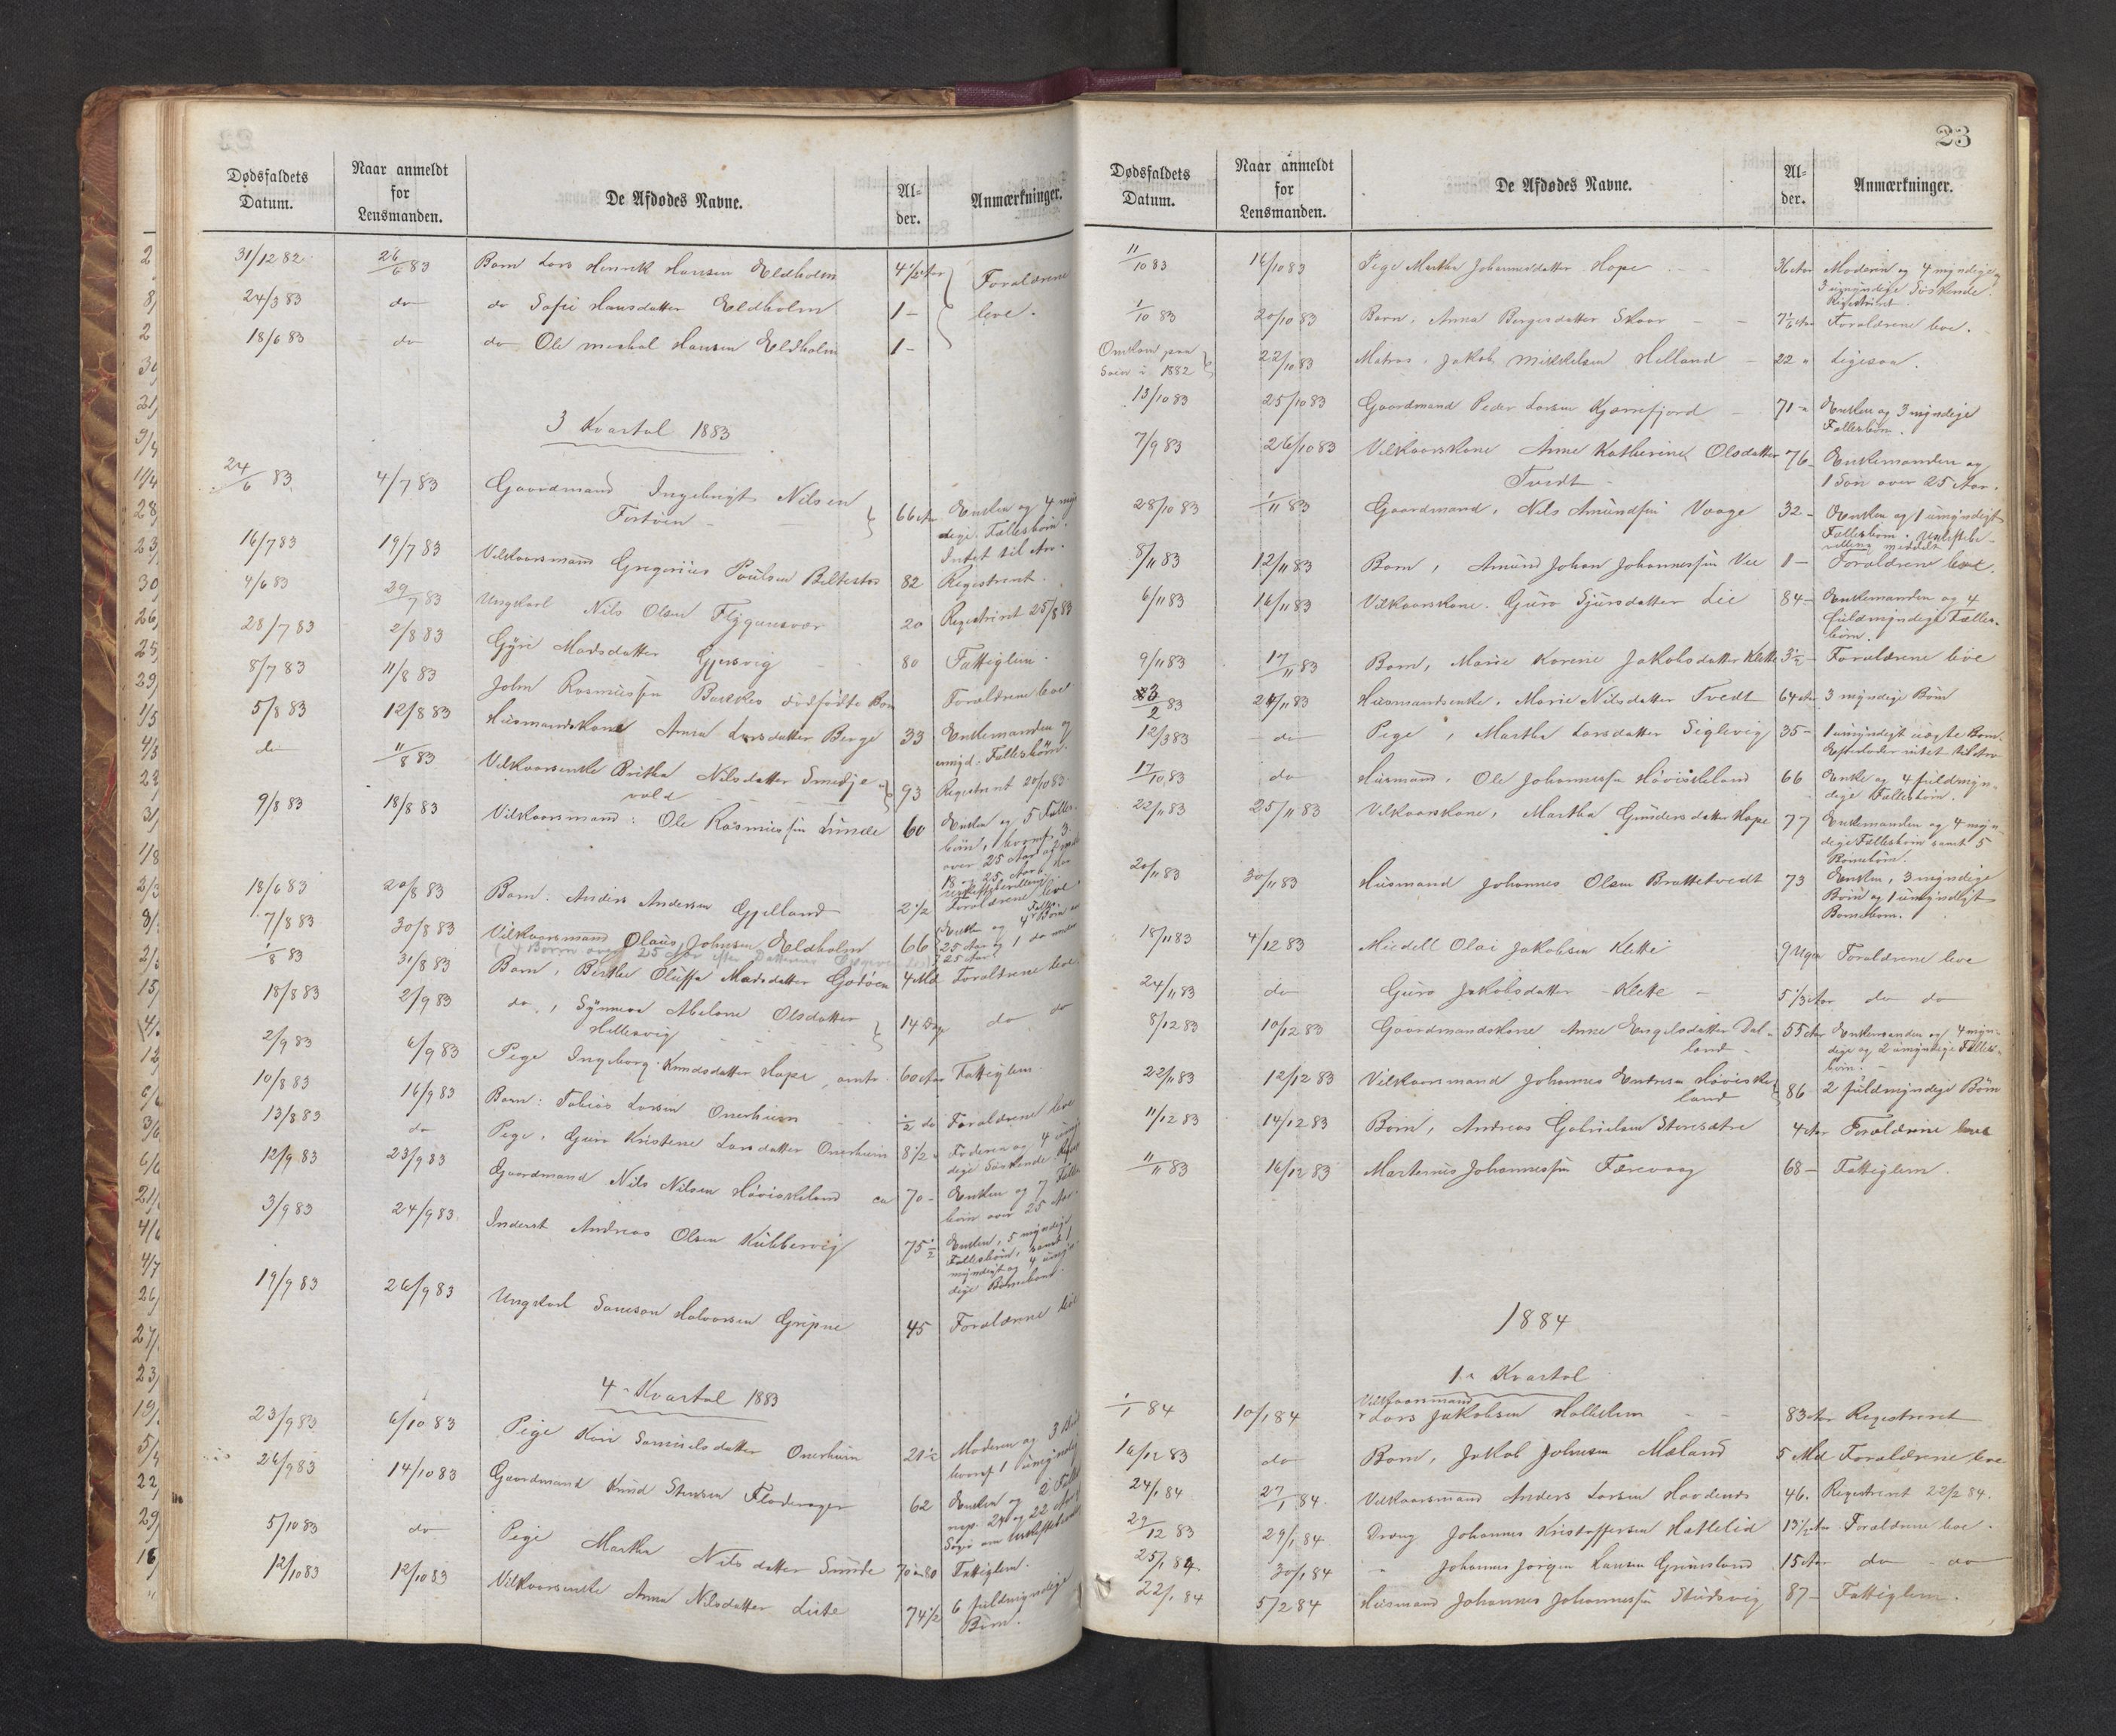 Dødsfaldets Datum. Naar anmeldt for Lensmanden. De Afdødes Navne. Al-der. Anmærkninger.
31/12 82 26/6 83 Barn Lars Henrik Hansen Eldholm 4 1/2 Aar Forældrene
24/3 83 do do Sofie Hansdatter Eldholm 1 - leve.
18/6 83 do do Ole Hansen Eldholm 1 -
3 Kvartal 1883
24/6 83 4/7 83 Gaardmand Ingebrigt Nilsen 66 Aar Enken og 4 myn
dige Fællesbørn.
16/7 83 19/7 83 Vilkaarsmand Gregorius Poulsen 82 Intet til Arv.
Registreret.
4/6 83 29/7 83 Ungkarl Nils Olsen 20 Registreret 25/8 83
28/7 83 2/8 83 Gyri Madsdatter Gjersvig 80 Fattiglem.
8/7 83 11/8 83 John Rasmussen dødfødte Barn Forældrene leve
5/8 83 12/8 83 Husmandskone Anna Larsdatter Berge 33 Enkemanden og
umyd. Fællesbørn.
do 11/8 83 Vilkaarsenke Britha Nilsdatter Smedje
vold 93 Registreret 20/10 83
9/8 83 18/8 83 Vilkaarsmand: Ole Rasmussen Sunde 60 Enken og 5 Fælles
børn, hvoraf 3
over 25 Aar
18 og 25 Aar.
18/6 83 20/8 83 Barn: Anders Andersen Gjelland 2 1/2 Forældrene leve
7/8 83 30/8 83 Vilkaarsmand Olaus Johnsen Eldholm 66 Enken og 4 Børn
25 Aar og 1 do under
25 Aar
1/8 83 31/8 83 Barn, Birthe Oluffa Madsdatter Godøen 4 Md Forældrene leve
18/8 83 2/9 83 do, Synneva Abelone Olsdatter
Hillesvig 14 Dg do do
2/9 83 6/9 83 Pige Ingeborg Knudsdatter Hope, omtr. 60 Aar Fattiglem.
10/8 83 16/9 83 Barn: Tobias Larsen Onerheim 1/2 do Forældrene leve
13/8 83 do Pige, Guro Kristene Larsdatter Onerheim 8 1/2 Faderen og 4 umyn
dige Søskende.
12/9 83 23/9 83 Gaardmand Nils Nilsen Høviskeland ca 70 - Enken og 7 Fælles
børn over 25 Aar.
3/9 83 24/9 83 Inderst Andreas Olsen Kubbervig 75 1/2 Enken, 5 myndige
Fællesbørn, samt 1
myndigt og 4 umyn
dige Børnebørn.
19/9 83 26/9 83 Ungkarl Samson Halvorsen Gripne 45 Forældrene leve
4 Kvartal 1883
23/9 83 6/10 83 Pige Kari Samuelsdatter Onerheim 21 1/2 Moderen og 3
hvoraf 1 umyndig
26/9 83 14/10 83 Gaardmand Knud Stensen Fladerager 62 Enken og 2 Fælles
resp. 24 og 22 Aar
5/10 83 do Pige Martha Nilsdatter Sunde 70 a 80 Fattiglem.
12/10 83 12/10 83 Vilkaarsenke Anna Nilsdatter 74 1/2 6 fuldmyndige
Børn.
23
Dødsfaldets Datum. Naar anmeldt for Lensmanden. De Afdødes Navne. Al-der. Anmærkninger.
11/10 83 14/10 83 Pige Martha Johannesdatter Hope 36 Aar Moderen og 4 myndige og
3 umyndige Søskende.
Registreret.
1/10 83 20/10 83 Barn, Anna Børgesdatter Skaar Aar Forældrene leve.
Omkom paa
Søen i 1882 22/10 83 Matros, Jakob Mikkelsen Helland 22 " Ligesaa.
13/10 83 25/10 83 Gaardmand Peder Larsen Kjærrefjord 71 " Enken og 3 myndige
Fællesbørn.
7/9 83 26/10 83 Vilkaarskone Anne Katherine Olsdatter
Tvedt 76 - Enkemanden og
1 Søn over 25 Aar.
28/10 83 1/11 83 Gaardmand, Nils Amundsen Vaage 32 - Enken og 1 umyndigt
Fællesbørn. Uskiftebe-
villing meddelt
8/11 83 12/11 83 Barn, Amund Johan Johannessen Vee 1 - Forældrene leve.
6/11 83 16/11 83 Vilkaarskone. Guro Sjursdatter Lie 84 - Enkemanden og 4
fuldmyndige Fælles-
børn.
9/11 83 17/11 83 Barn, Marie Karine Jakobsdatter Klette 3 1/2 - Forældrene leve
23/2 83 24/11 83 Husmandsenke, Marie Nilsdatter Tvedt 64 Aar 3 myndige Børn
12/3 83 do Pige, Martha Larsdatter Siglevig 35 - 1 umyndigt uægte Barn.
Efterlader intet til Arv
17/10 83 do Husmand, Ole Johannessen Høviskeland 66 Enke og 4 fuldmyn-
dige Fællesbørn.
22/11 83 25/11 83 Vilkaarskone, Martha Gundersdatter Hope 77 Enkemanden og 4 myn-
dige Fællesbørn samt 5
Børnebørn.
20/11 83 30/11 83 Husmand Johannes Olsen Brattetvedt 73 Enken, 3 myndige
Børn og 1 umyndigt
Barnebarn.
18/11 83 4/12 83 Olai Jakobsen Klette 9 Uger Forældrene leve
24/11 83 do Guro Jakobsdatter Klette 5 1/3 Aar do do
8/12 83 10/12 83 Gaardmandskone Anne Engelsdatter Dal-
land 55 Aar Enkemanden og 4 myn-
dige og 2 umyndige Fælles-
børn.
22/11 83 12/12 83 Vilkaarsmand Johannes Høviske
land 86 2 fuldmyndige Børn
11/12 83 14/12 83 Barn, Andreas Gabrielsen Storesætre 4 Aar Forældrene leve
11/11 83 16/12 83 Martenus Johannessen Færevaag 68 - Fattiglem.
1884
1 Kvartal
1/1 84 10/1 84 Vilkaarsmand
Lars Jakobsen 83 Aar Registreret
16/12 83 do Barn, Jakob Johnsen Mæland 5 Md Forældrene leve
24/1 84 27/1 84. Vilkaarsmand Anders Larsen 46. Registreret 22/2 84.
29/12 83 29/1 84 Dreng Johannes Kristoffersen Hattelid 13 1/2 Aar Forældrene leve.
25/1 84 30/1 84 " Johannes Jørgen Larsen Grunsland 15 Aar do - do
22/1 84 5/2 84 Husmand Johannes Johannessen Skudsvig 87 - Fattiglem.